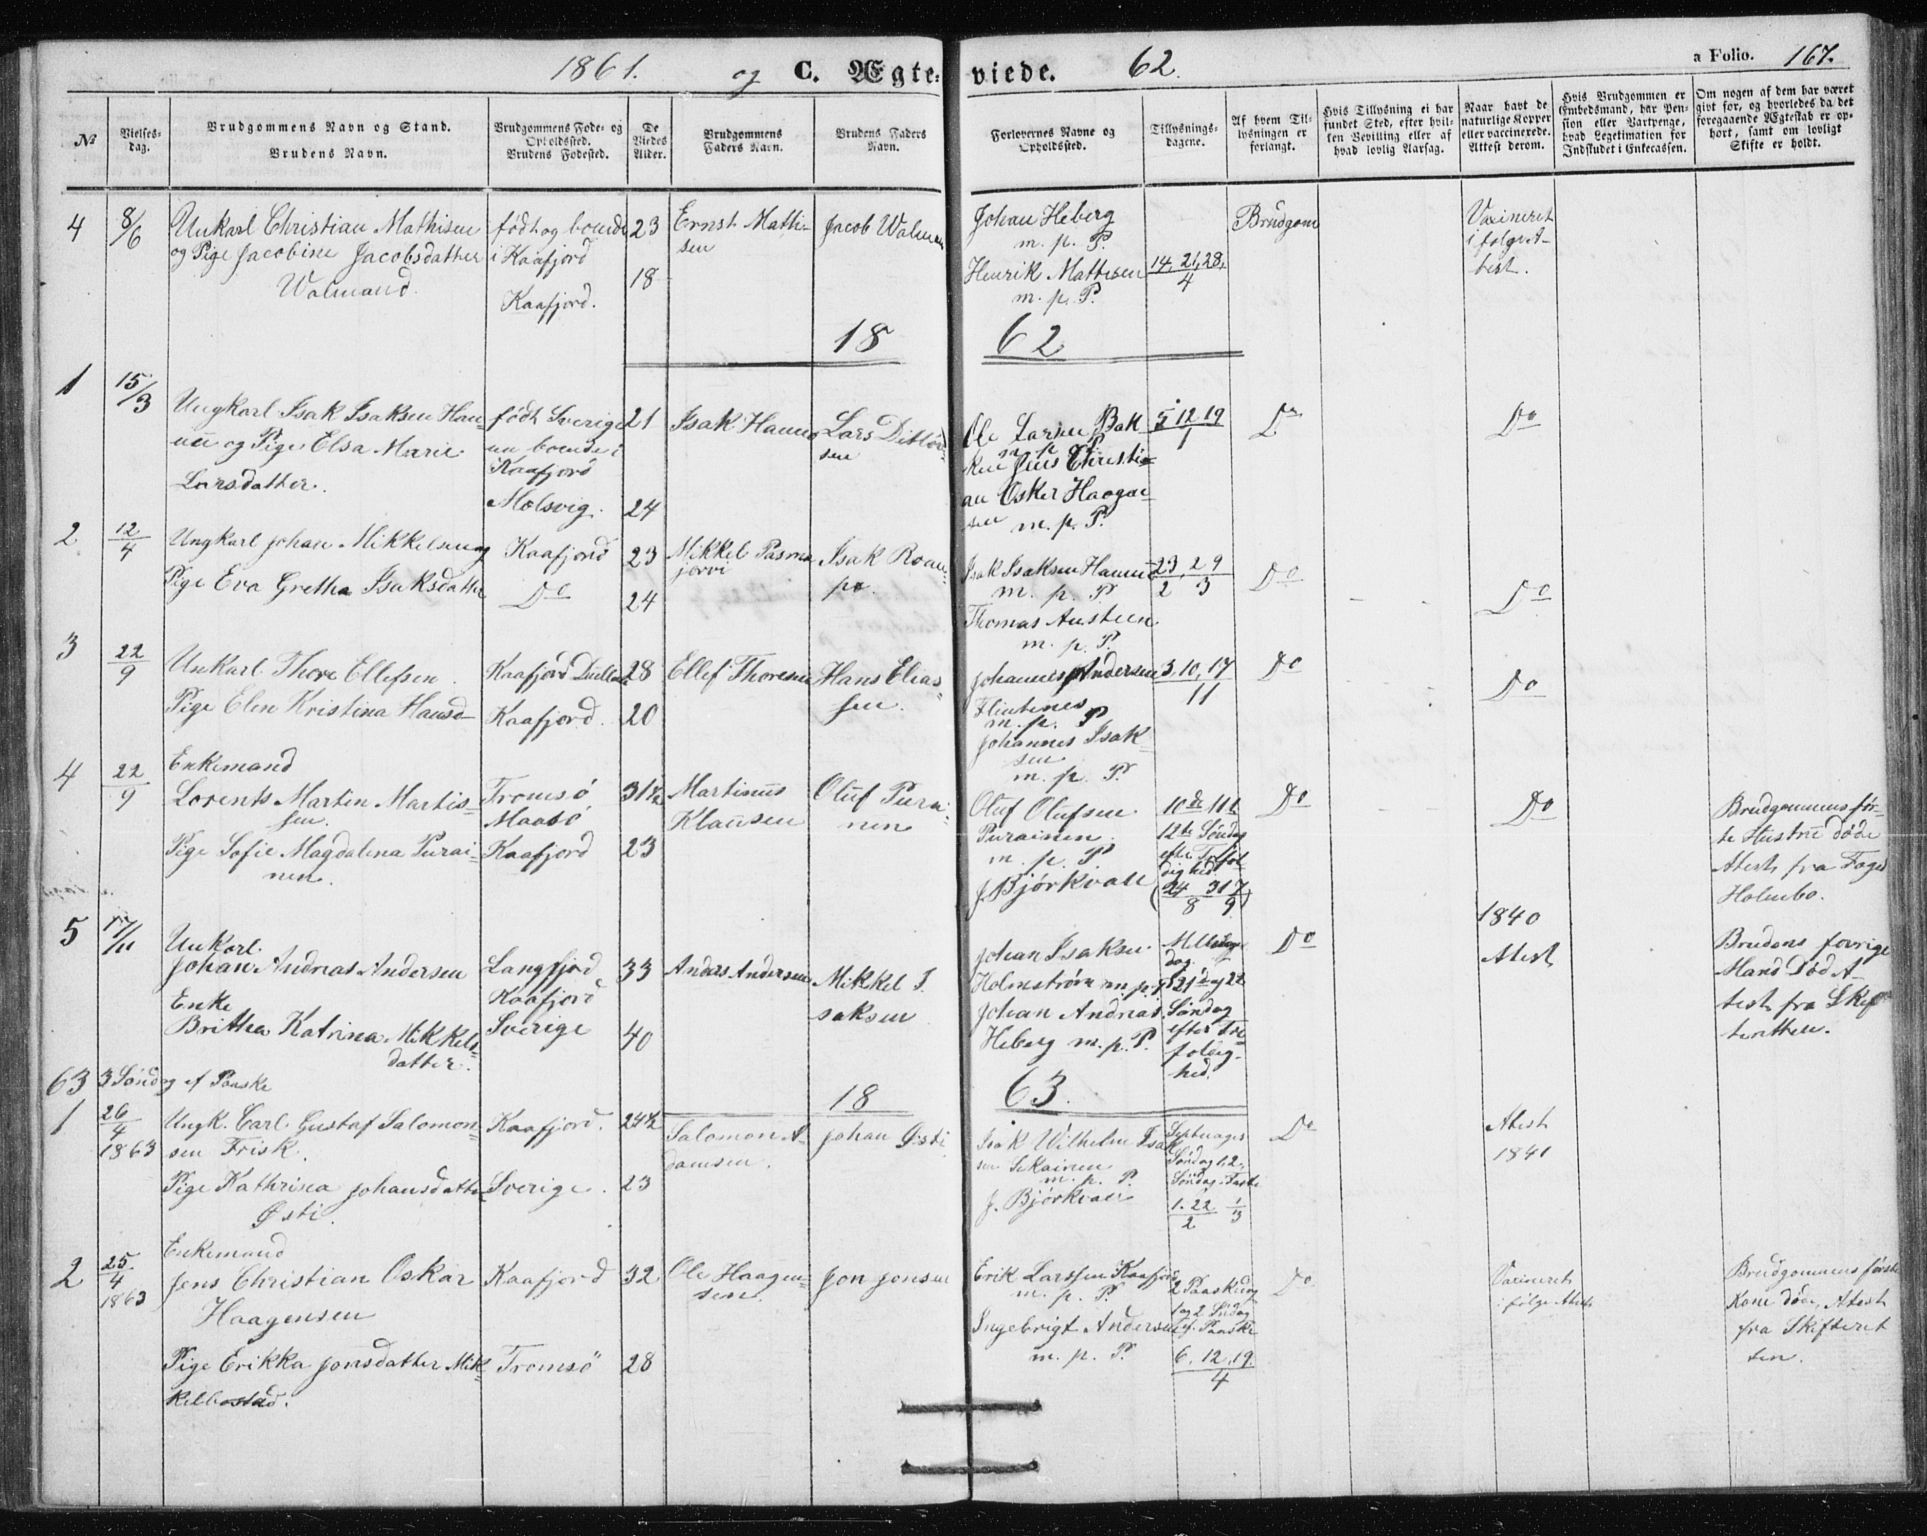 1861. og C. Ægte- viede. 62. a Folio. 167.
№
Vielses-
dag.
Brudgommens Navn og Stand.
Brudens Navn.
Brudgommens Føde- og
Opholdssted.
Brudens Fødested.
De
Viedes
Alder.
Brudgommens
Faders Navn.
Brudens Faders
Navn.
Forlovernes Navne og
Opholdssted.
Tillysnings-
dagene.
Af hvem Til-
lysningen er
forlangt.
Hvis Tillysning ei har
fundet Sted, efter hvil-
ken Bevilling eller af
hvad lovlig Aarsag.
Naar havt de
naturlige Kopper
eller vaccinerede.
Attest derom.
Hvis Brudgommen er
Embedsmand, har Pen-
sion eller Vartpenge,
hvad Legetimation for
Indskudet i Enkecassen.
Om nogen af dem har været
givt for, og hvorledes da det
foregaaende Ægteskab er op-
hørt, samt om lovligt
Skifte er holdt.
4
8/6
Unkarl Christian Mathisen
og Pige Jacobine Jacobsdatter
Walmand.
født og boende
i Kaafjord
Kaafjord.
23
18
Ernst Mathi-
sen
Jacob Walman
Johan Heberg
m. p. P.
Henrik Mathisen
m. p. P.
14, 21, 28,
4
Brudgom
Vaxineret
i følge A-
test.
18 62
1
15/3
Ungkarl Isak Isaksen Han-
nu og Pige Elsa Marie
Larsdatter.
født Sverige
nu boende i
Kaafjord
Molsvig.
21
24
Isak Hannu
Lars Ditlev-
sen
Ole Larsen Bak
m p P
ken Jens Christi-
an Osker Haagen-
sen m. p. P.
5 12 19
1
Do
Do
2
12/4
Ungkarl Johan Mikkelsen og
Pige Eva Gretha Isaksdatter
Kaafjord
Do
23
24
Mikkel Pasma
jervi
Isak Roan-
pa.
Isak Isaksen Hannu
m. p. P.
Thomas Austeen
m. p. P.
23, 2 9
2 3
Do
Do
3
22/9
Unkarl Thore Ellefsen.
Pige Elen Kristina Hansd-
Kaafjord
Kaafjord.
28
20
Ellef Thoresen
Hans Elias-
sen.
Johannes Andersen
Flintenes
m. p. P
Johannes Isak-
sen
m. p. P.
3, 10, 17
11
Do
Do
4
22/9
Enkemand
Lorents Martin Martis-
sen.
Pige Sofie Magdalena Purai-
nen.
Tromsø
Maasø
Kaafjord
31½
23
Martinus
Klausen
Oluf Purai-
nen
Oluf Olufsen
Purainen.
m. p. P.
J. Bjørkvall
10de 11te
12te Søndag
efter Trefol
dighed
(24 31 7
8 9)
Do
Do
Brudgommens før-
te Hustru døde
Atest fra Foged
Holmbo.
5
17/11
Unkarl
Johan Andreas Andersen
Enke
Brittha Katrina Mikkels-
datter.
Langfjord
Kaafjord
Sverige
33
40
Anders Andersen
Mikkel I-
saksen
Johan Isaksen
Holmstrøm m. p. P
Johan Andrias
Heberg m. p. P.
dag.
21de og 22
Søndag
efter Tre
foldig-
hed.
Do
1840
Atest
Brudens forrige
Mand Død A-
test fra Skif
teretten.
63 3 Søndag ef Paaske
18 63.
1
26/4
1863
Ungk. Carl Gustaf Salomon-
sen Frisk.
Pige Kathrina Johansdatter
Østi.
Kaafjord.
Sverige.
24½
23
Salomon A-
damsen.
Johan Østi
Isak Wilhelm Isak
sen
m. p. P.
J. Bjørkvall
Septuages
Søndag 1, 2,
Søndag i Faste
1. 22 1
2 3
Do
Atest
1841
2
25/4
1863
Enkemand
Jens Christian Oskar
Haagensen
Pige Erikka Jonsdatter Mik-
kelbostad.
Kaafjord
Tromsö
32
28
Ole Haagen-
sen.
Jon Jonsen
Erik Larssen Kaafjord
m. p. P.
Ingebrigt Andersen
m. p. P.
2 Paaskedag
1 og 2 Søndag
ef. Paaske
6, 12, 19.
4
Do
Vaxineret
i følge Atest
Brudgommens første
Kone døde, Atest
fra Skifteret
ten.